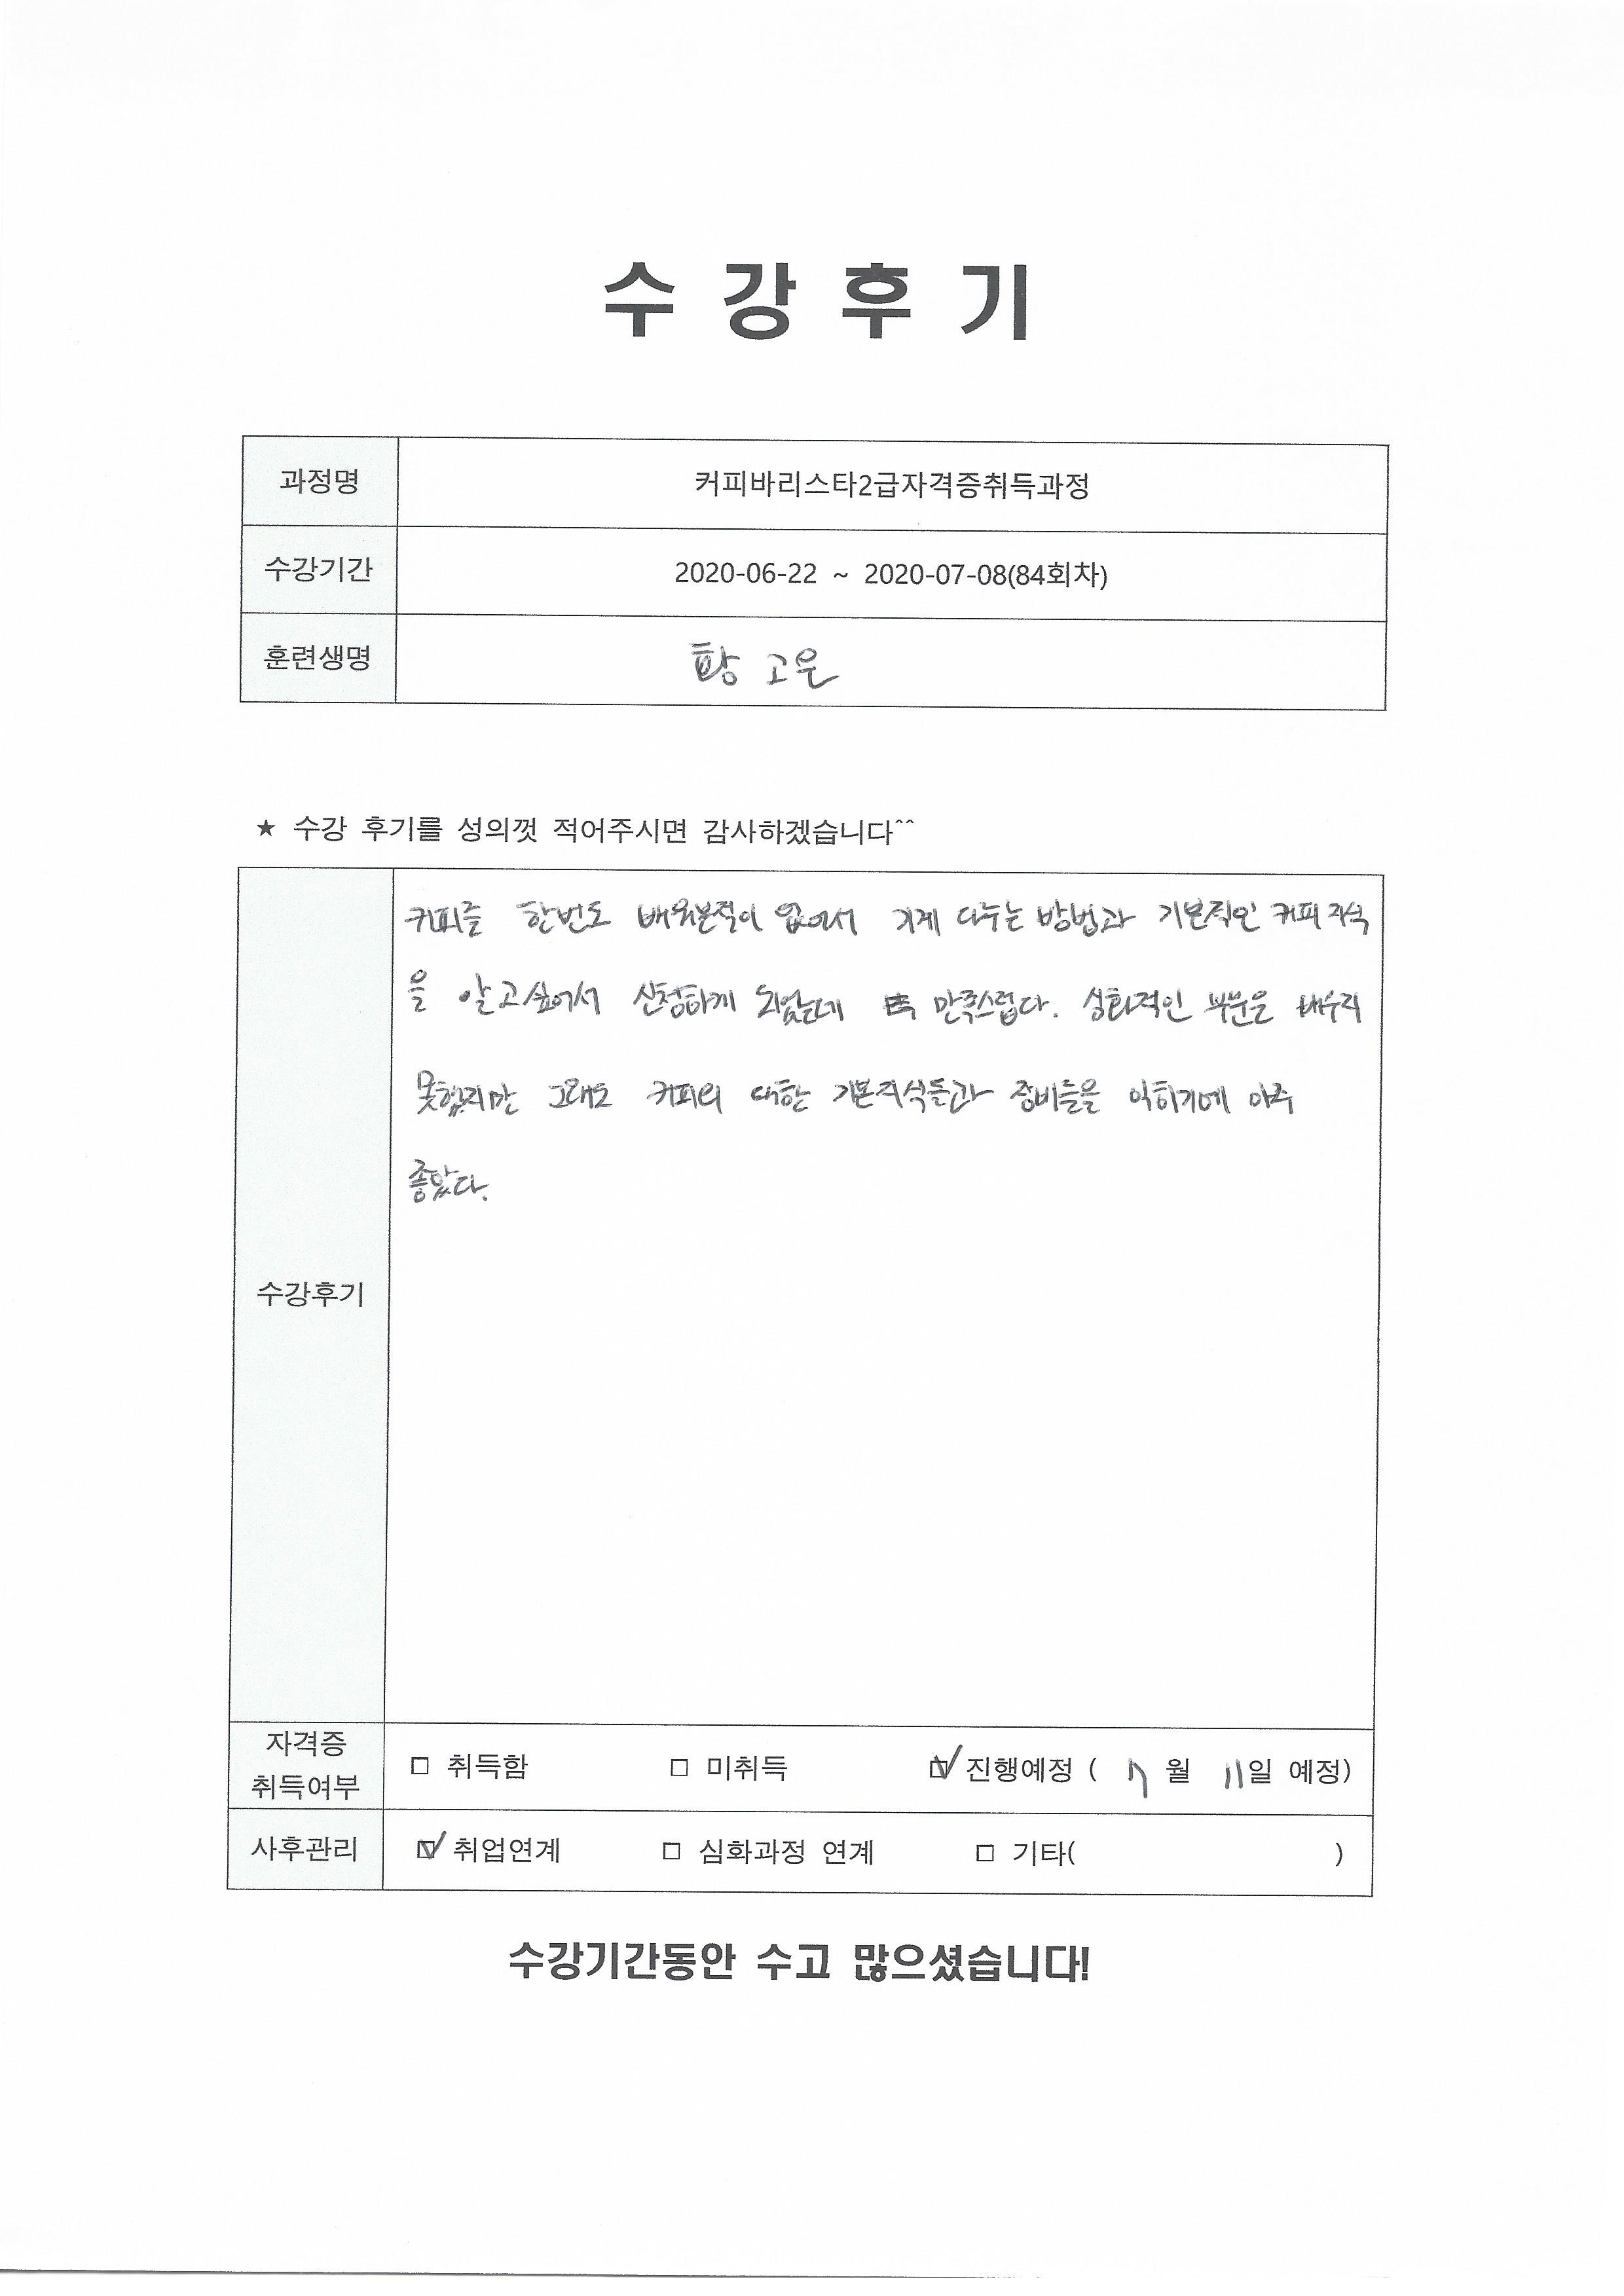 수 강 후 기
과정명 커피바리스타2급자격증취득과정
수강기간 2020-06-22 ~ 2020-07-08(84회차)
훈련생명 황 고운
★ 수강 후기를 성의껏 적어주시면 감사하겠습니다^^
커피를 한번도 배워본적이 없어서 기계 다루는 방법과 기본적인 커피 지식
을 알고싶어서 신청하게 되었는데 만족스럽다. 심화적인 부분은 배우지
못했지만 그래도 커피의 대한 기본지식들과 장비들을 익히기에 아주
좋았다.
수강후기
자격증
취득여부
□ 취득함 □ 미취득 ☑ 진행예정 ( 7 월 11일 예정)
사후관리 ☑ 취업연계 □ 심화과정 연계 □ 기타( )
수강기간동안 수고 많으셨습니다!